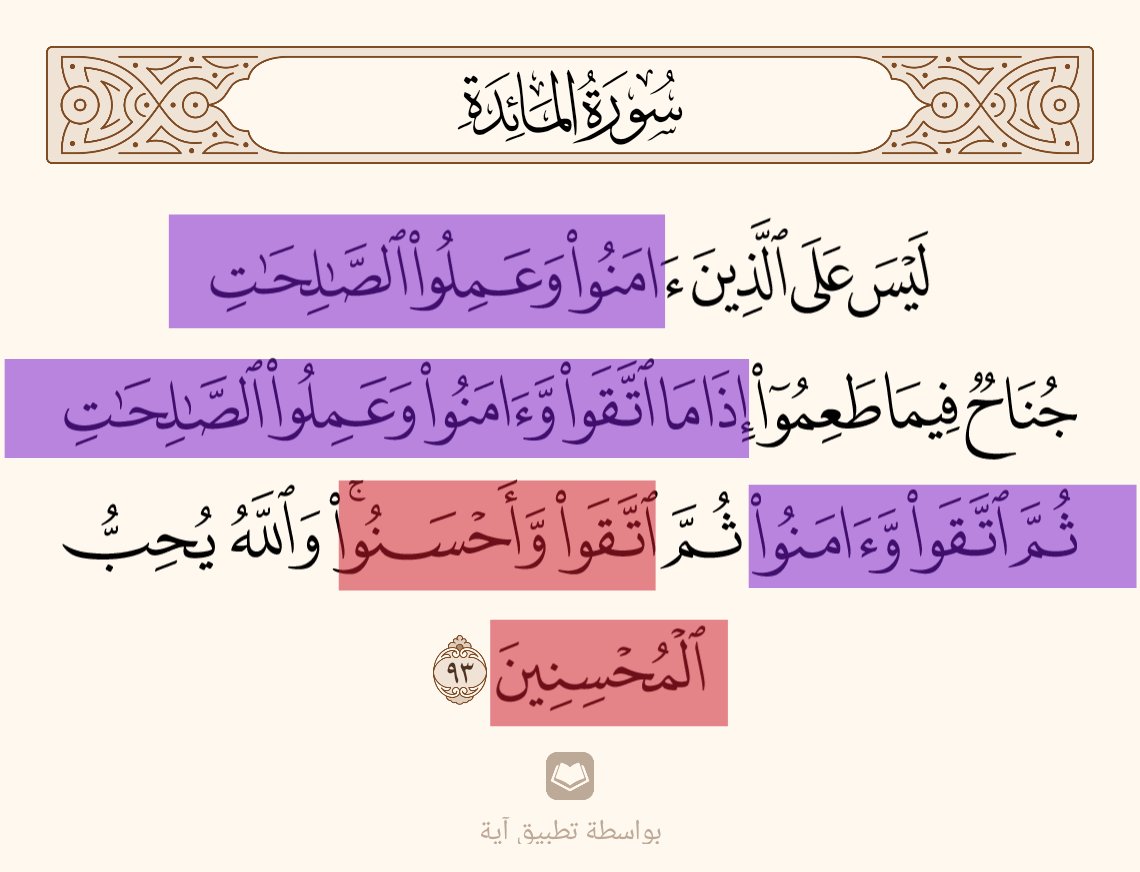 سُورَةُ المَائِدَةِ
لَيۡسَ عَلَى ٱلَّذِينَ ءَامَنُواْ وَعَمِلُواْ ٱلصَّٰلِحَٰتِ
جُنَاحٞ فِيمَا طَعِمُوٓاْ إِذَا مَا ٱتَّقَواْ وَّءَامَنُواْ وَعَمِلُواْ ٱلصَّٰلِحَٰتِ
ثُمَّ ٱتَّقَواْ وَّءَامَنُواْ ثُمَّ ٱتَّقَواْ وَّأَحۡسَنُواْۚ وَٱللَّهُ يُحِبُّ
ٱلۡمُحۡسِنِينَ ٩٣
بواسطة تطبيق آية